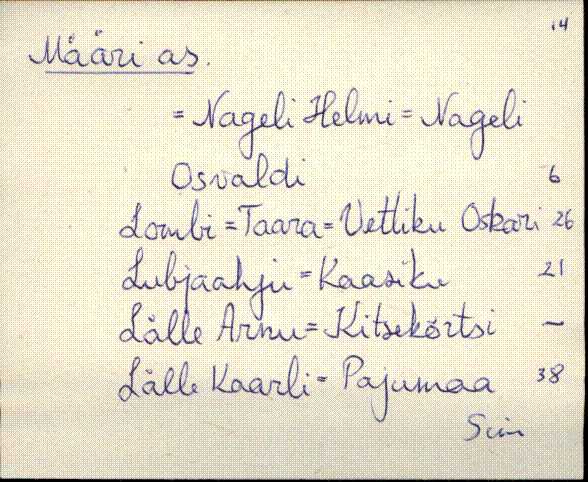 14
Määri as.
= Nageli Helmi = Nageli
Osvaldi 6
Lombi = Taara = Vetliku Oskari 26
Lubjaahju = Kaasiku 21
Lälle Arnu = Kitsekõrtsi —
Lälle Kaarli = Pajumaa 38